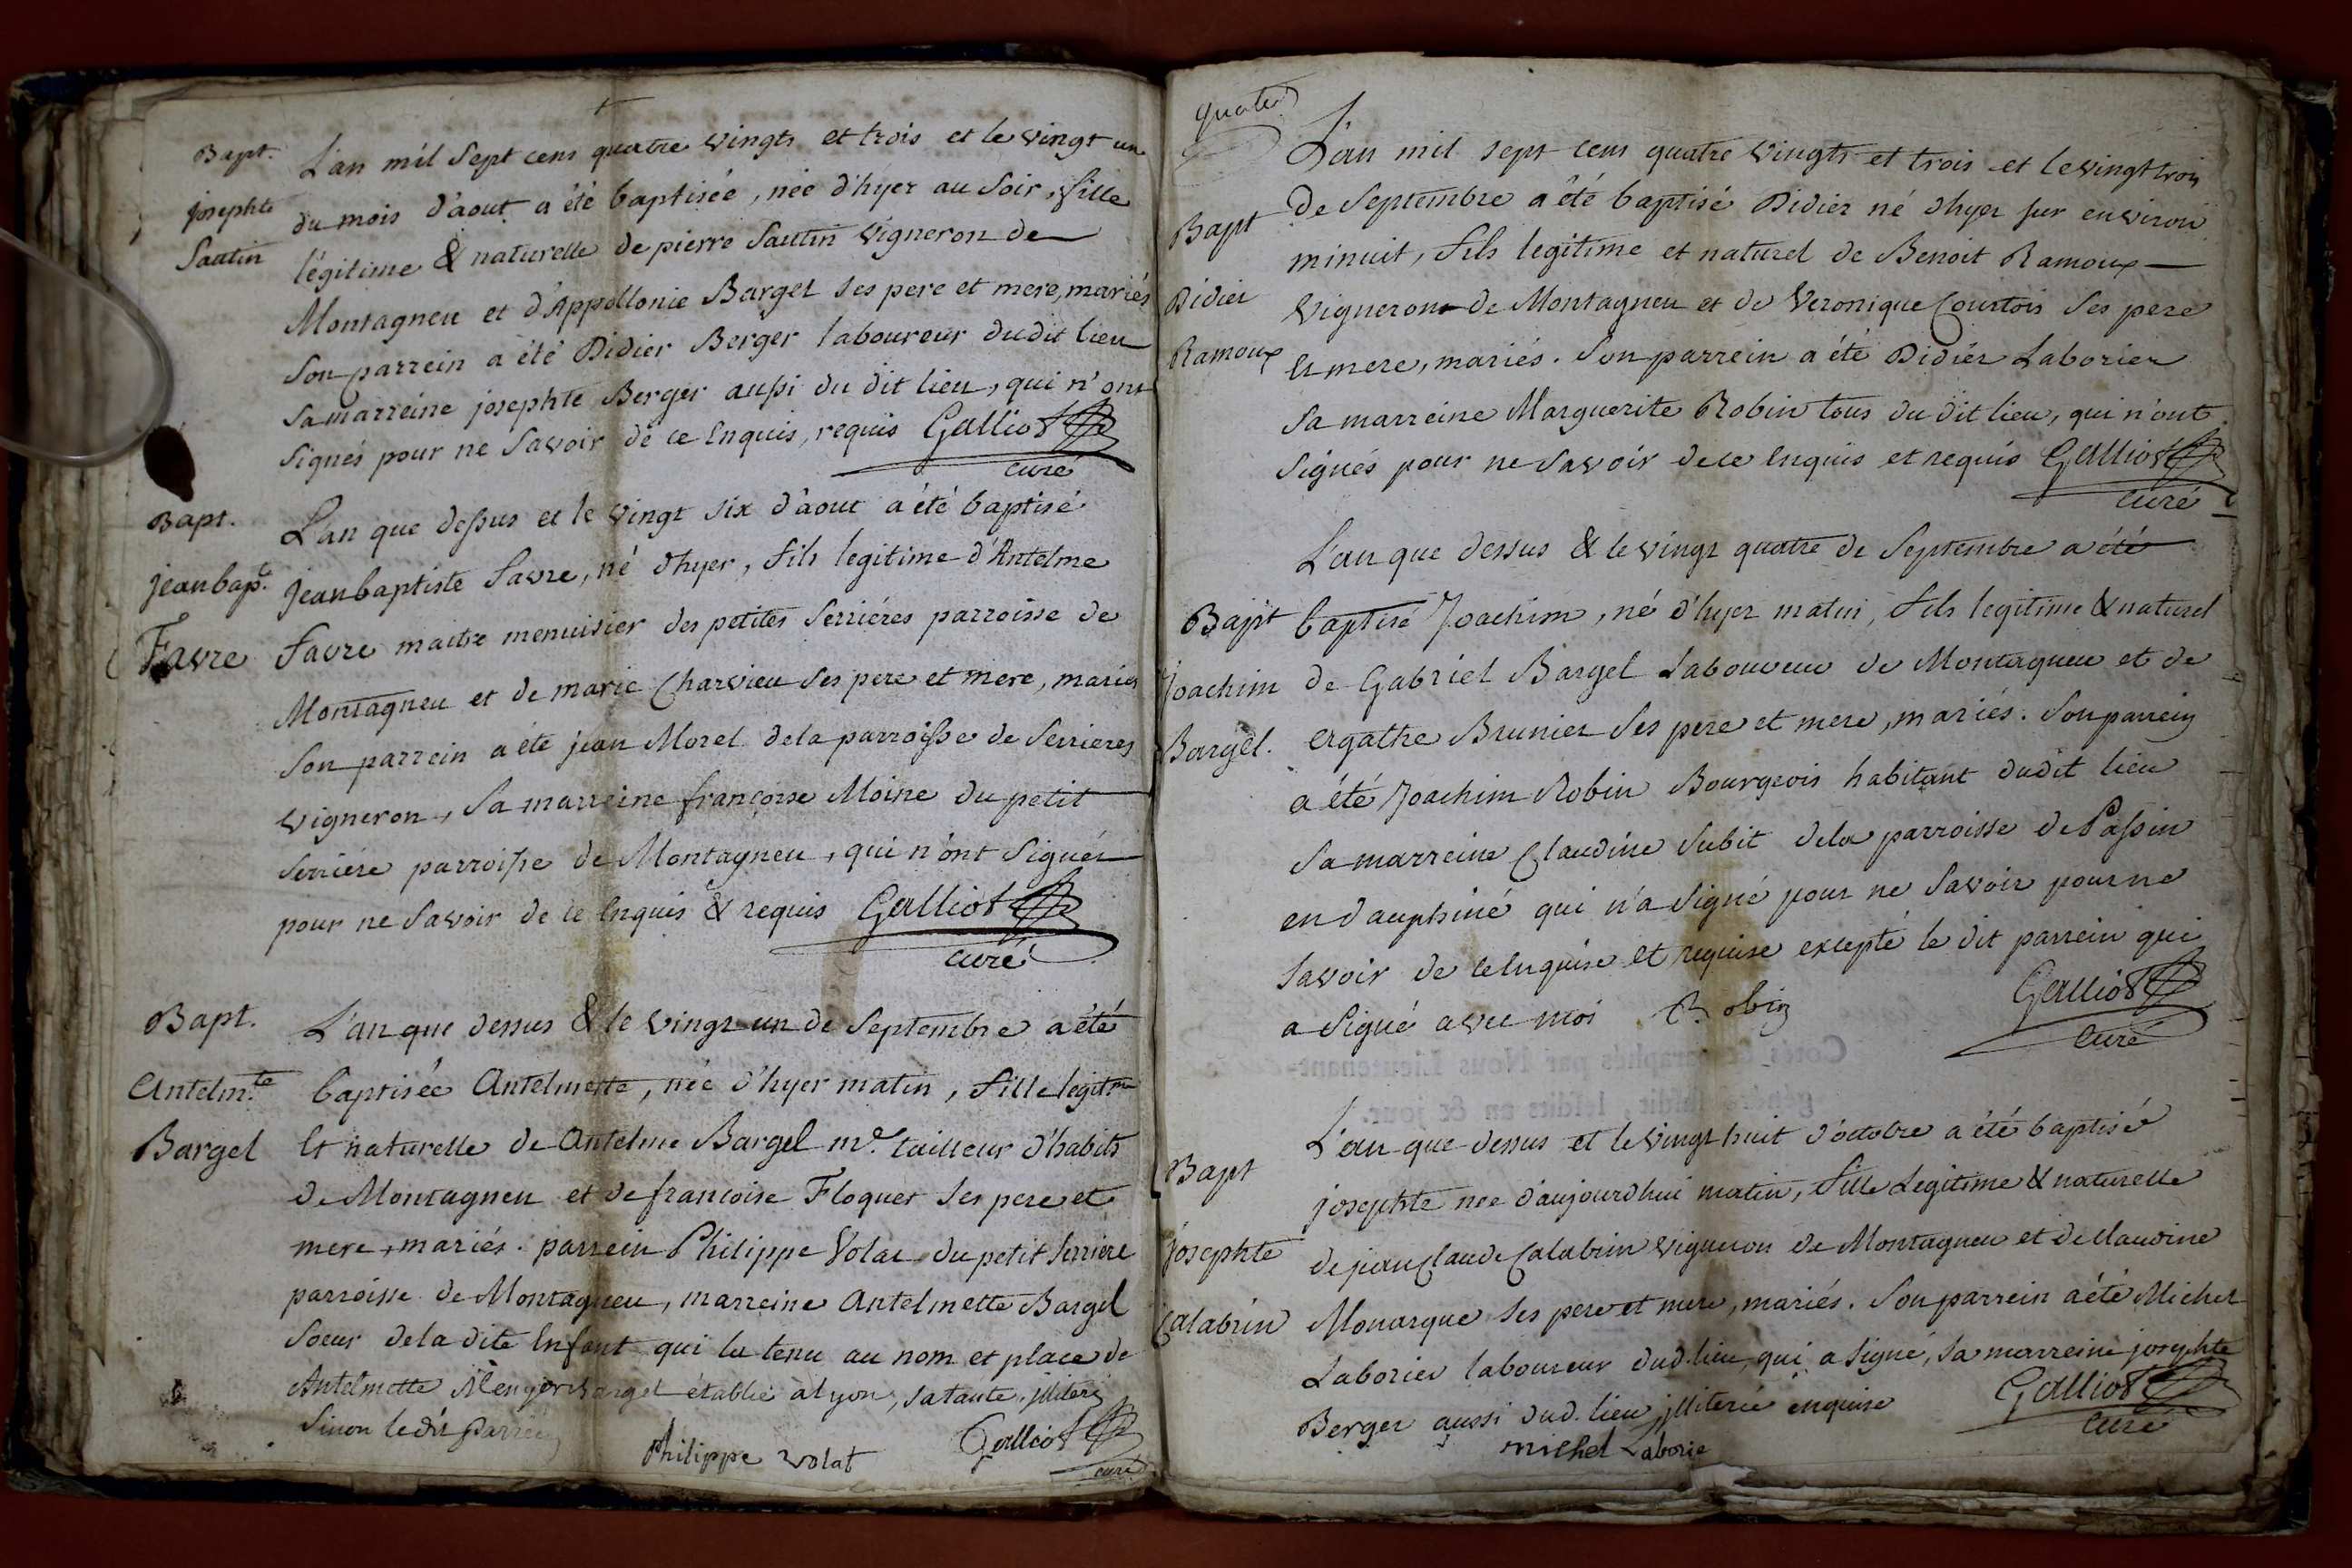 Bapt.
josephte
Sautin
L'an mil Sept cens quatre vingts et trois et le vingt un
du mois d'aout a été baptisée, née d'hyer au Soir, fille
légitime & naturelle de pierre Sautin vigneron de
Montagneu et d'Appollonie Bargel ses pere et mere, mariés
Son parrein a été Didier Berger laboureur dudit lieu
sa marreine josephte Berger aussi du dit lieu, qui n'ont
signés pour ne Savoir de ce Enquis, requis Galliot
curé
Bapt.
jeanbapte.
Favre
L'an que dessus et le vingt six d'aout a été baptisé
jeanbaptiste favre, né d'hyer, fils legitime d'Antelme
favre maitre menuisier des petites Serriéres parroisse de
Montagneu et de marie Charvieu ses pere et mere, mariés
Son parrein a été jean Morel dela parroisse de Serrieres
vigneron, Sa marreine françoise Moine du petit
serriére parroisse de Montagneu, qui n'ont Signés
pour ne Savoir de ce Enquis & requis Galliot
curé
Bapt.
Antelmte
Bargel
L'an que dessus & le vingt un de Septembre a été
baptisée Antelmette, née d'hyer matin, fille legitme
Et naturelle de Antelme Bargel me. tailleur d'habits
de Montagneu et de françoise Floquet ses pere et
mere, mariés. parrein Philippe Volat du petit Serriére
parroisse de Montagneu, marreine Antelmette Bargel
Soeur dela dite Enfant qui la tenu au nom et place de
Antelmette Bargel établie a lyon, sa tante, illiterés
Sinon le dit Parrein
Philippe volat Galliot
curé
quatre
Bapt
Didier
Ramoux
L'an mil sept cens quatre vingts et trois et le vingt trois
de Septembre a été baptisé Didier né d'hyer sur environ
minuit, fils legitime et naturel de Benoit Ramoux
Vigneron de Montagneu et de Veronique Courtois ses pere
Et mere, mariés. Son parrein a été Didier Laborier
sa marreine Marguerite Robin tous du dit lieu, qui n'ont
signés pour ne savoir de ce Enquis et requis Galliot
curé
Bapt
Joachim
Bargel.
L'an que dessus & le vingt quatre de Septembre a été
baptisé Joachim, né d'hyer matin, fils legitime & naturel
de Gabriel Bargel Laboureur de Montagneu et de
Agathe Brunier ses pere et mere, mariés. Son parrein
a été Joachim Robin Bourgeois habitant dudit lieu
Sa marreine Claudine Subit dela parroisse de Passin
en dauphiné qui n'a Signé pour ne Savoir pour ne
savoir de ce Enquise et requise excepté le dit parrein qui
a Signé avec moi Robin Galliot
curé
Bapt
josephte
Calabrin
L'an que dessus et le vingt huit d'octobre a été baptisée
josephte née d'aujourdhui matin, fille Legitime & naturelle
de jean Claude Calabrin vigneron de Montagneu et de Claudine
Monarque ses pere et mere, mariés. Son parrein a été Michel
Laborier laboureur dud. lieu, qui a signé, sa marreine josephte
Berger aussi dud. lieu, illiterée enquise Galliot
curé
michel Laborie